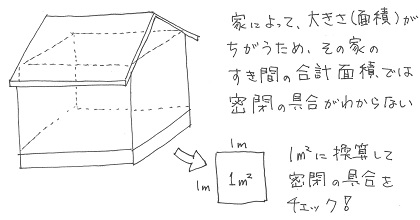 家によって、大きさ(面積)が
ちがうため、その家の
すき間の合計面積では
密閉の具合がわからない
1m
1m
1m²
1m²に換算して
密閉の具合を
チェック!